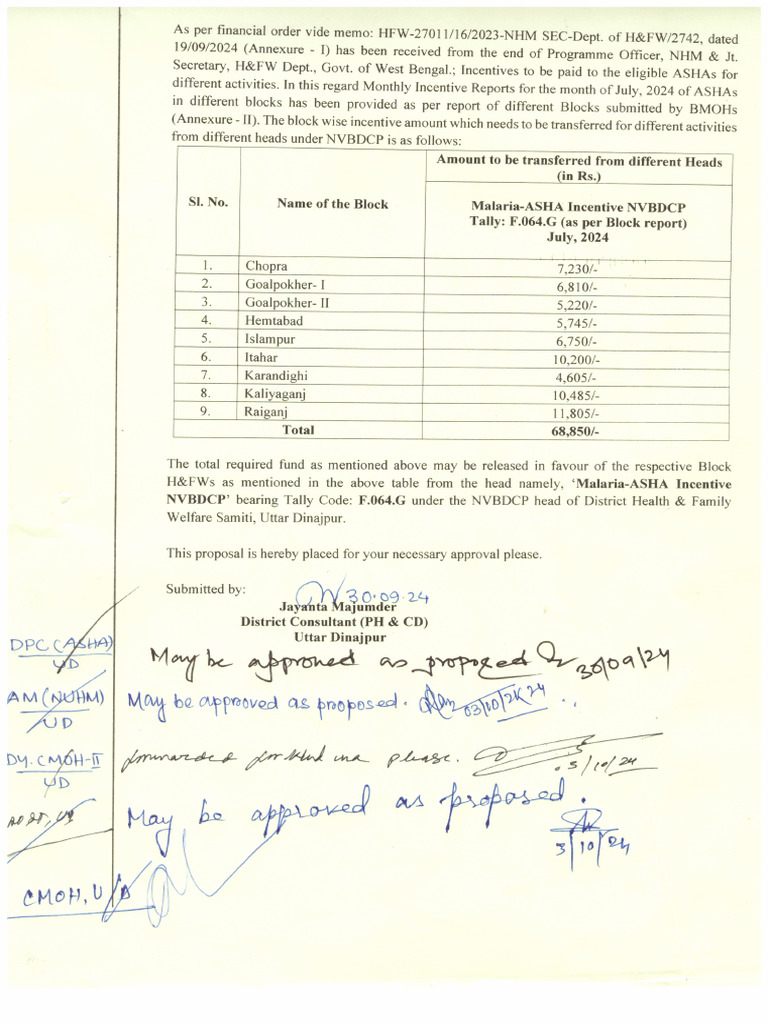 As per financial order vide memo: HFW-27011/16/2023-NHM SEC-Dept. of H&FW/2742, dated
19/09/2024 (Annexure - I) has been received from the end of Programme Officer, NHM & Jt.
Secretary, H&FW Dept., Govt. of West Bengal.; Incentives to be paid to the eligible ASHAs for
different activities. In this regard Monthly Incentive Reports for the month of July, 2024 of ASHAs
in different blocks has been provided as per report of different Blocks submitted by BMOHs
(Annexure - II). The block wise incentive amount which needs to be transferred for different activities
from different heads under NVBDCP is as follows:
Amount to be transferred from different Heads
(in Rs.)
Sl. No. Name of the Block
Malaria-ASHA Incentive NVBDCP
Tally: F.064.G (as per Block report)
July, 2024
1. Chopra 7,230/-
2. Goalpokher- I 6,810/-
3. Goalpokher- II 5,220/-
4. Hemtabad 5,745/-
5. Islampur 6,750/-
6. Itahar 10,200/-
7. Karandighi 4,605/-
8. Kaliyaganj 10,485/-
9. Raiganj 11,805/-
Total 68,850/-
The total required fund as mentioned above may be released in favour of the respective Block
H&FWs as mentioned in the above table from the head namely, ‘Malaria-ASHA Incentive
NVBDCP’ bearing Tally Code: F.064.G under the NVBDCP head of District Health & Family
Welfare Samiti, Uttar Dinajpur.
This proposal is hereby placed for your necessary approval please.
Submitted by:
30.09.24
Jayanta Majumder
District Consultant (PH & CD)
Uttar Dinajpur
DPC (ASHA)
UD
May be approved as proposed 30/09/24
AM (NUHM)
UD
May be approved as proposed. 03/10/2K24
DY. CMOH-II
UD
please. 03/10/24
May be approved as proposed.
3/10/24
CMOH, UD